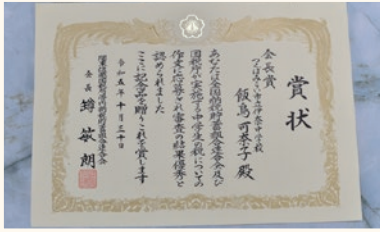 賞状
会長賞
つくばみらい市立伊奈中学校
飯島 可奈子 殿
あなたは全国納税貯蓄組合連合会及び
国税庁が実施する中学生の税についての
作文に応募され審査の結果優秀と
認められました
ここに記念品を贈りこれを賞します
令和五年十月三十日
会長 敏朗